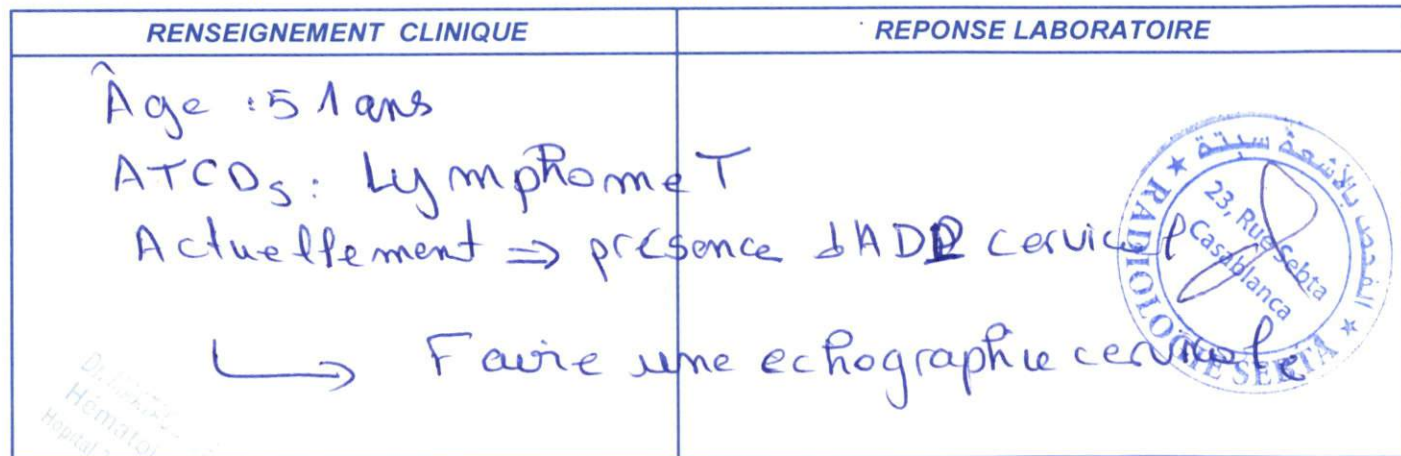 RENSEIGNEMENT CLINIQUE
REPONSE LABORATOIRE
Âge : 51 ans
ATCDs : Lymphome T
Actuellement ⇒ présence d'ADP cervical
↳ Faire une echographie cervicale
الفحص بالأشعة سبتة
23, Rue Sebta
Casablanca
RADIOLOGIE SEBTA
Hémato
Hopital